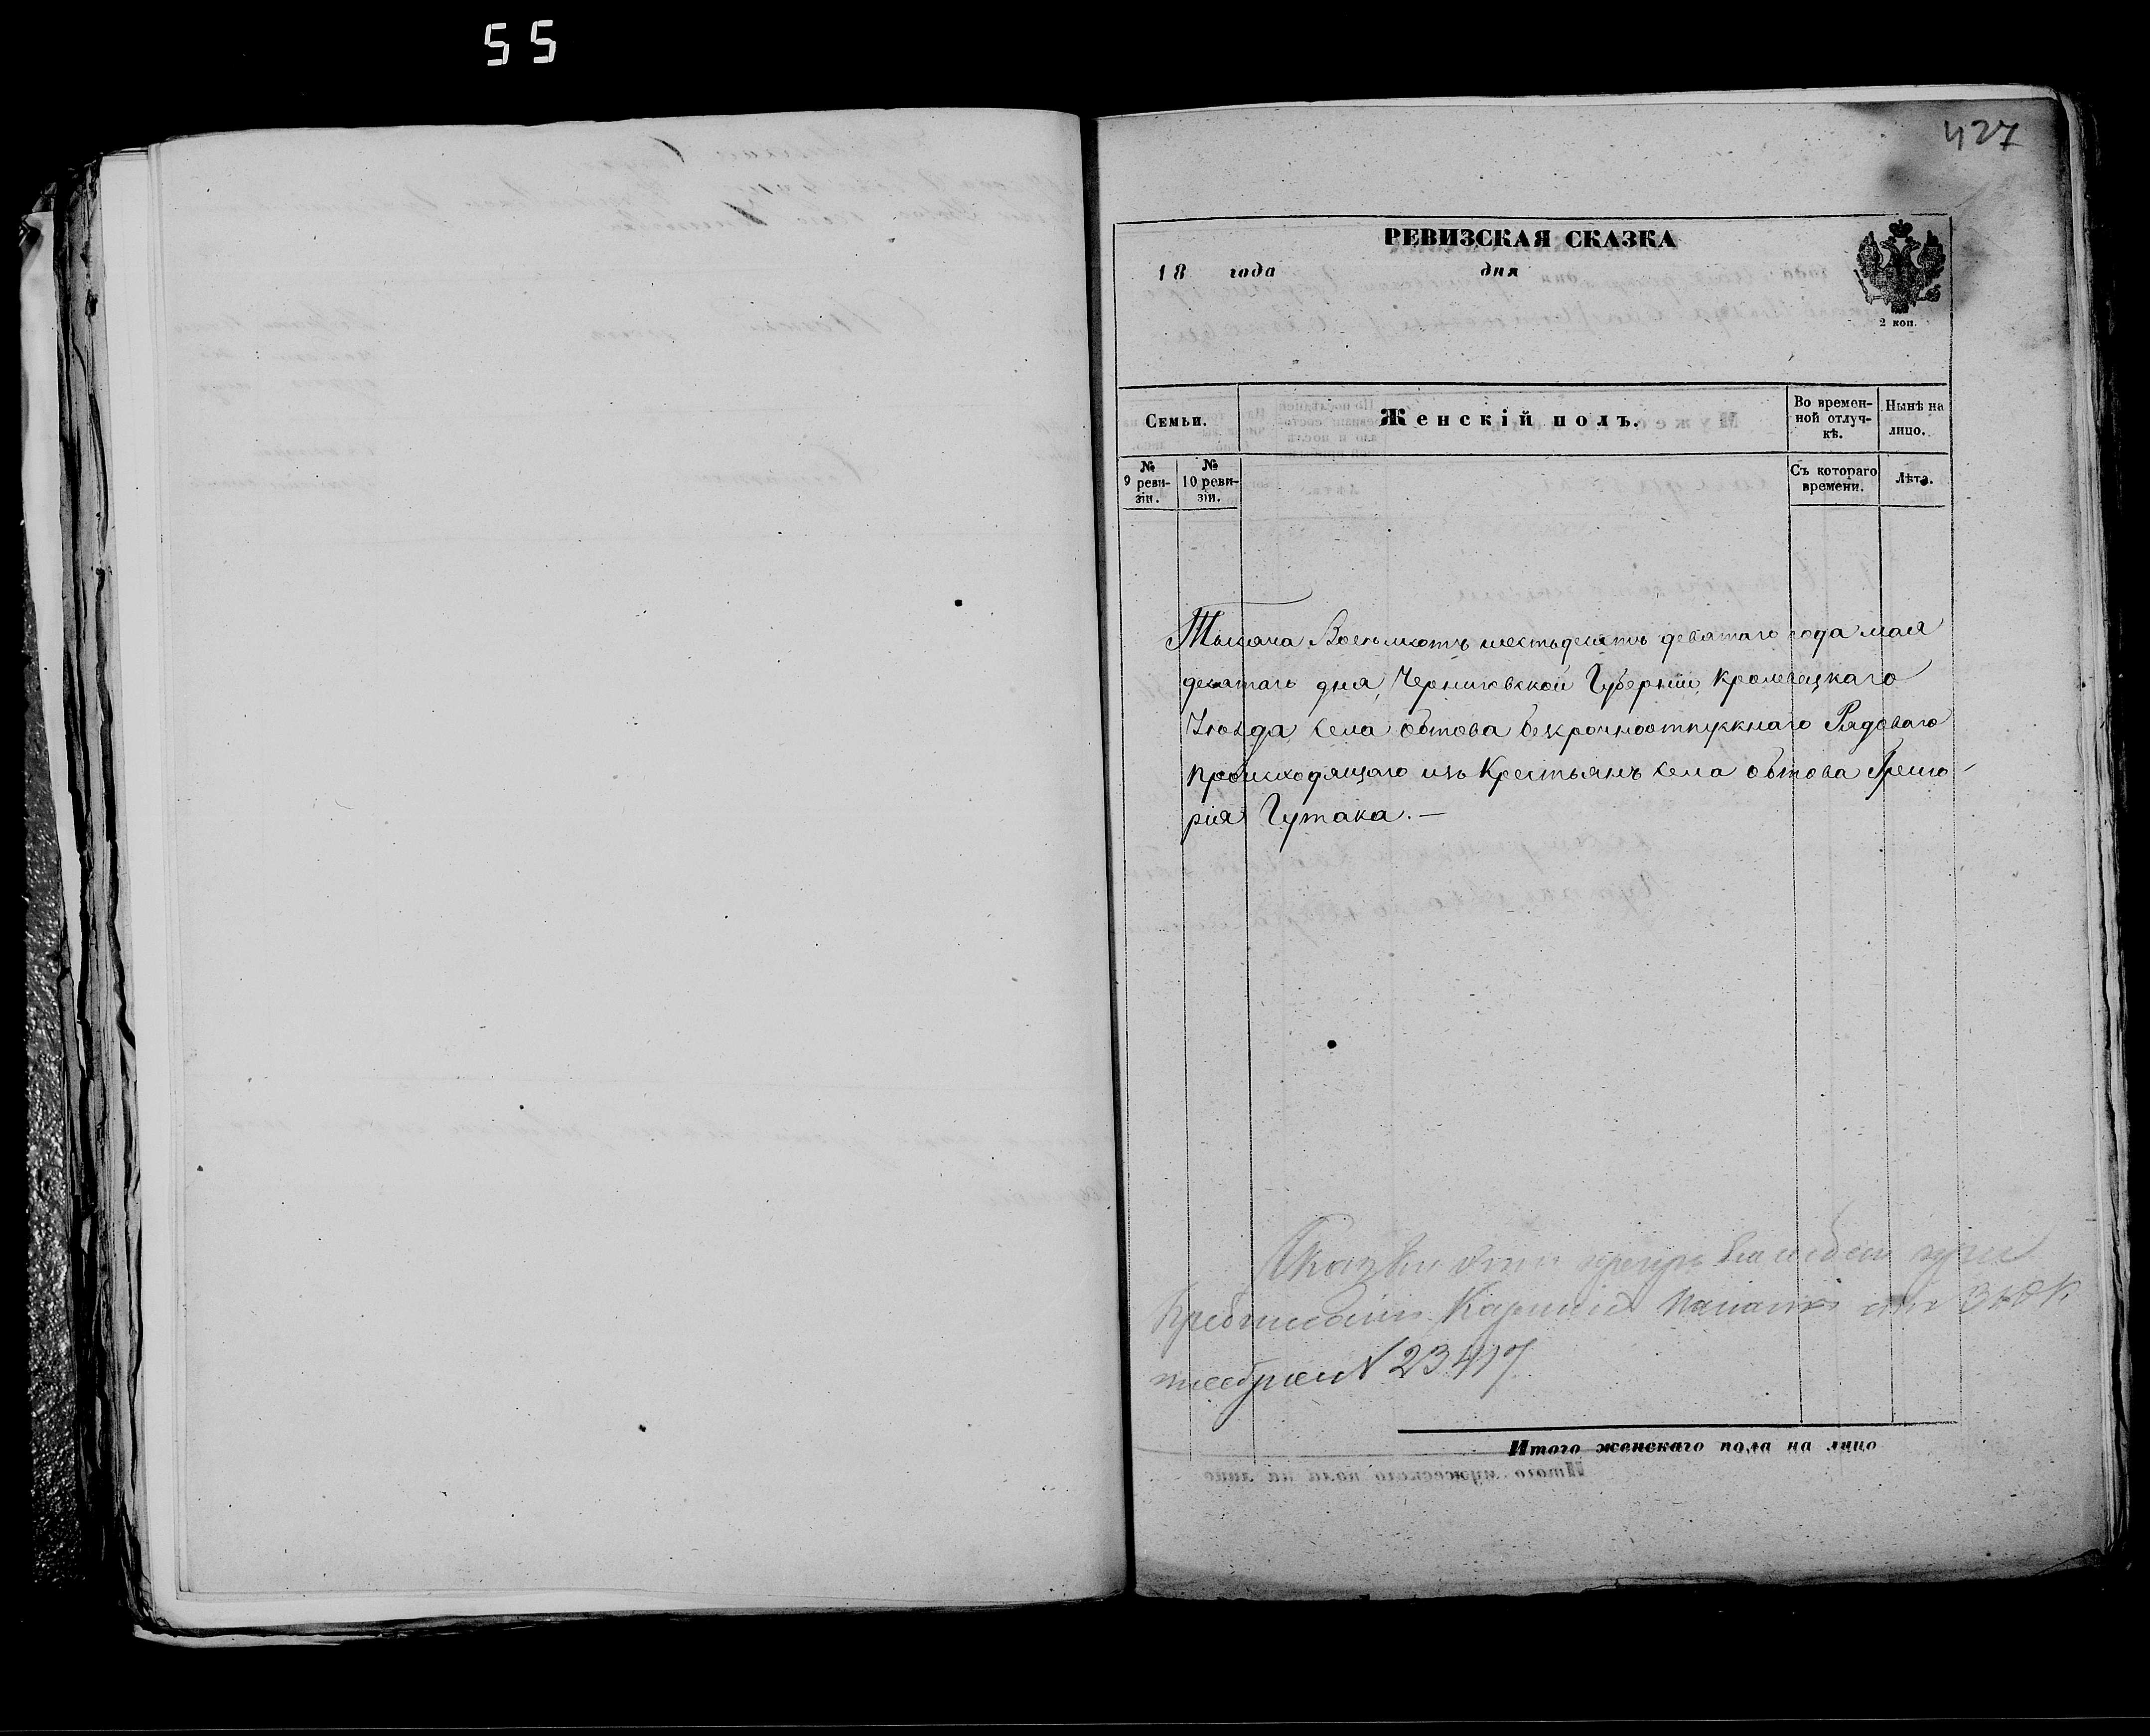 55
427
РЕВИЗСКАЯ СКАЗКА
18 года дня
2 коп.
Семьи. Женскій полъ. Во времен-ной отлуч-кѣ. Нынѣ на лицо.
№ 9 реви-зіи. № 10 реви-зіи. Съ котораго времени. Лѣта.
Тысяча Восемьсотъ шестьдесятъ девятаго года мая
десятаго дня, Черниговской Губерніи, Кролевецкаго
Уѣзда села Обтова безсрочноотпускнаго Рядоваго
происходящаго изъ Крестьянъ села Обтова Григо-
рія Гутака. —
Сказки при
Казенной Палаты
№ 23417
Итого женскаго пола на лицо